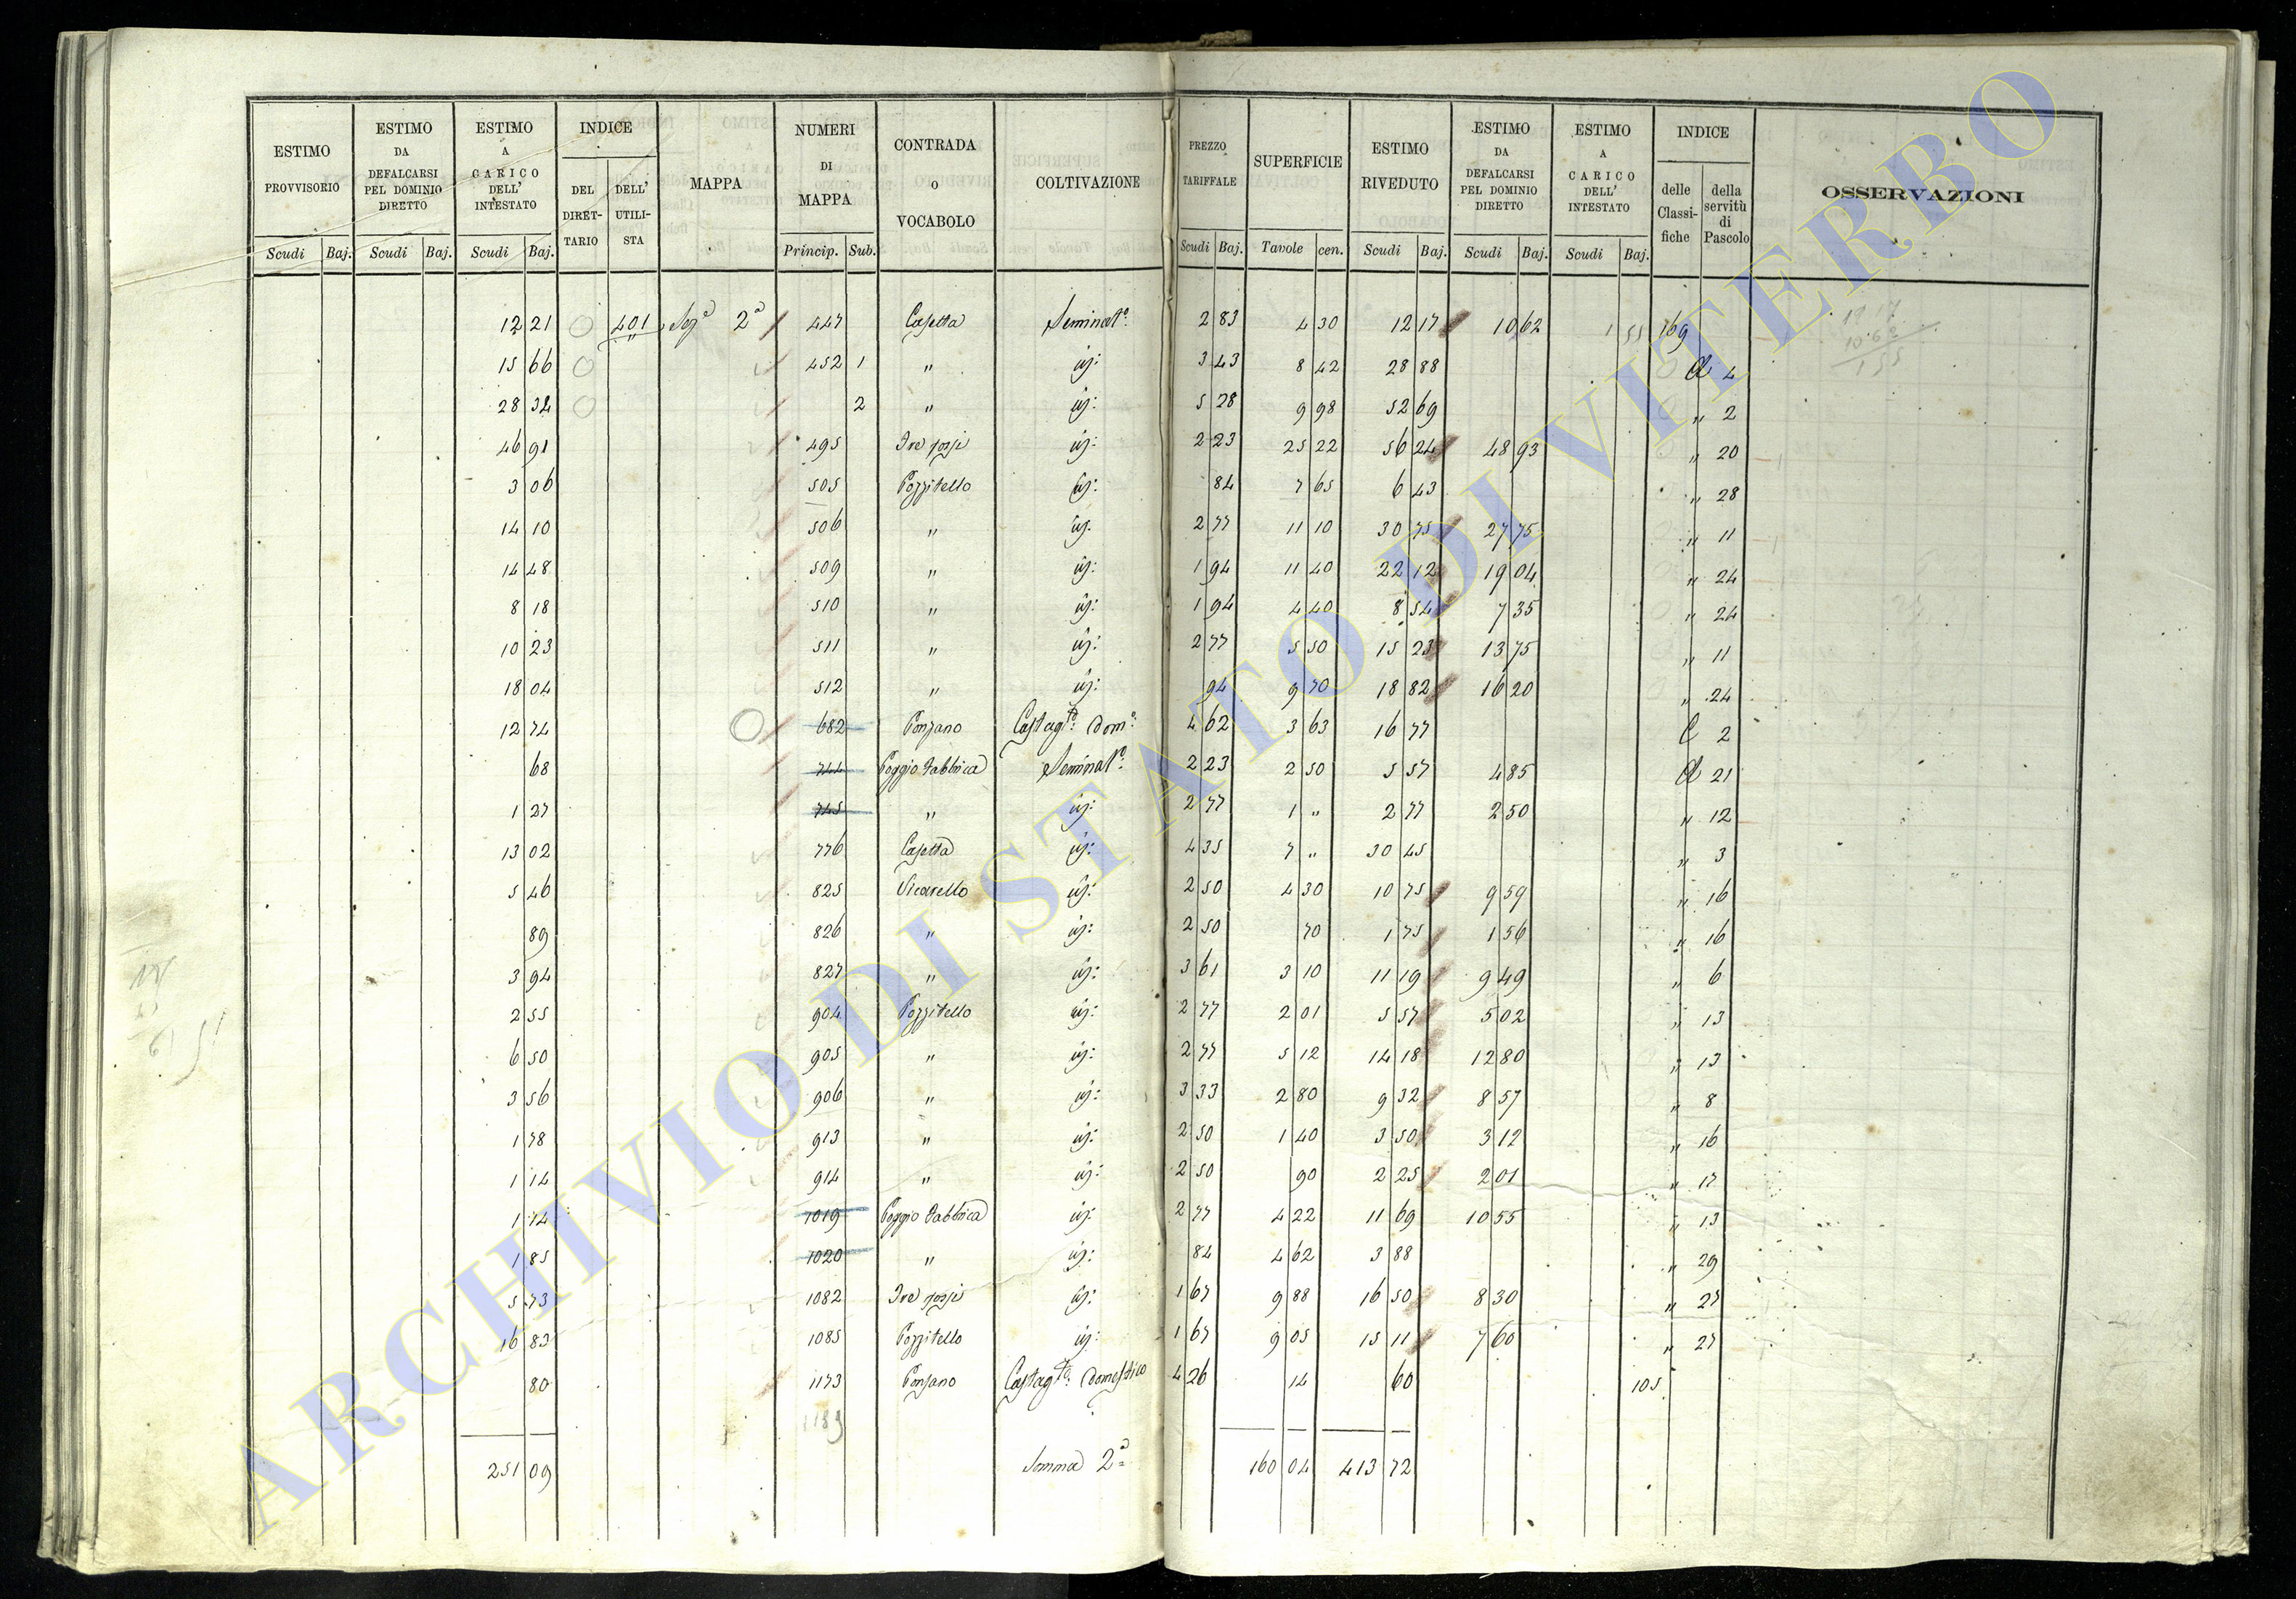 ESTIMO PROVVISORIO | ESTIMO DA DEFALCARSI PEL DOMINIO DIRETTO | ESTIMO A CARICO DELL' INTESTATO | INDICE | MAPPA | NUMERI DI MAPPA | CONTRADA O VOCABOLO | COLTIVAZIONE | PREZZO TARIFFALE | SUPERFICIE | ESTIMO RIVEDUTO | ESTIMO DA DEFALCARSI PEL DOMINIO DIRETTO | ESTIMO A CARICO DELL' INTESTATO | INDICE | OSSERVAZIONI
DEL DIRETTARIO | DELL' UTILISTA | delle Classifiche | della servitù di Pascolo
Scudi | Baj. | Scudi | Baj. | Scudi | Baj. | Princip. | Sub. | Scudi | Baj. | Tavole | cen. | Scudi | Baj. | Scudi | Baj. | Scudi | Baj.
12 21 | 401 | Sez.e 2a | 447 | Casetta | Seminato: | 2 83 | 4 30 | 12 17 | 10 62 | 1 55 | 169
15 66 | 452 1 | " | id: | 3 43 | 8 42 | 28 88 | A 4
28 32 | 2 | " | id: | 5 28 | 9 98 | 52 69 | " 2
46 91 | 495 | Tre fossi | id: | 2 23 | 25 22 | 56 24 | 48 93 | " 20
3 06 | 505 | Pozzitello | id: | 84 | 7 65 | 6 43 | " 28
14 10 | 506 | " | id: | 2 77 | 11 10 | 30 75 | 27 75 | " 11
14 48 | 509 | " | id: | 1 94 | 11 40 | 22 12 | 19 04 | " 24
8 18 | 510 | " | id: | 1 94 | 4 40 | 8 54 | 7 35 | " 24
10 23 | 511 | " | id: | 2 77 | 5 50 | 15 23 | 13 75 | " 11
18 04 | 512 | " | id: | 94 | 9 70 | 18 82 | 16 20 | " 24
12 74 | 682 | Ponzano | Castagto: Dome: | 4 62 | 3 63 | 16 77 | C 2
68 | 744 | Poggio Fabbrica | Seminato: | 2 23 | 2 50 | 5 57 | 4 85 | A 21
1 27 | 745 | " | id: | 2 77 | 1 " | 2 77 | 2 50 | " 12
13 02 | 776 | Casetta | id: | 4 35 | 7 " | 30 45 | " 3
5 46 | 825 | Vicarello | id: | 2 50 | 4 30 | 10 75 | 9 59 | " 16
89 | 826 | " | id: | 2 50 | 70 | 1 75 | 1 56 | " 16
3 94 | 827 | " | id: | 3 61 | 3 10 | 11 19 | 9 49 | " 6
2 55 | 904 | Pozzitello | id: | 2 77 | 2 01 | 5 57 | 5 02 | " 13
6 50 | 905 | " | id: | 2 77 | 5 12 | 14 18 | 12 80 | " 13
3 56 | 906 | " | id: | 3 33 | 2 80 | 9 32 | 8 57 | " 8
1 78 | 913 | " | id: | 2 50 | 1 40 | 3 50 | 3 12 | " 16
1 14 | 914 | " | id: | 2 50 | 90 | 2 25 | 2 01 | " 17
1 74 | 1019 | Poggio Fabbrica | id: | 2 77 | 4 22 | 11 69 | 10 55 | " 13
1 85 | 1020 | " | id: | 84 | 4 62 | 3 88 | " 29
5 73 | 1082 | Tre fossi | id: | 1 67 | 9 88 | 16 50 | 8 30 | " 27
16 83 | 1085 | Pozzitello | id: | 1 67 | 9 05 | 15 11 | 7 60 | " 27
80 | 1173 | Ponzano | Castagto: Domestico | 4 26 | 14 | 60 | 105
1189
251 09 | Somma 2a | 160 04 | 413 72
12 17
10 62
1 55
ARCHIVIO DI STATO DI VITERBO